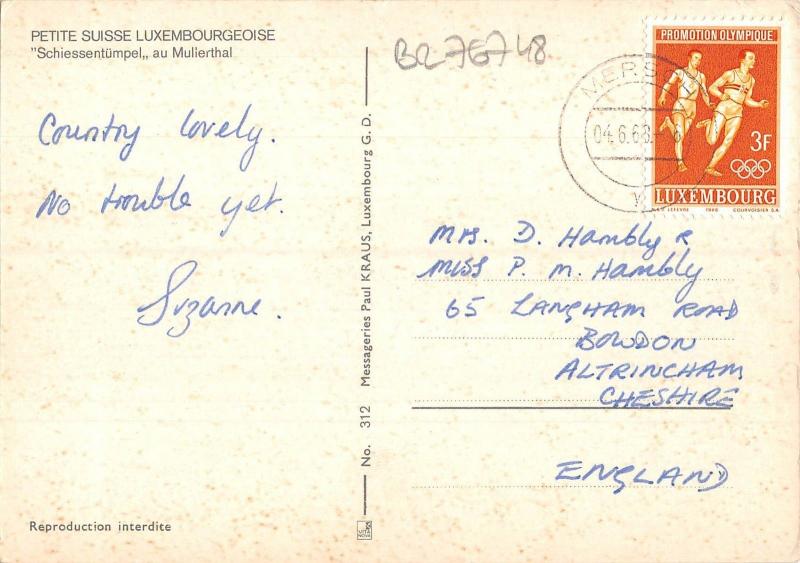 PETITE SUISSE LUXEMBOURGEOISE
"Schiessentümpel„ au Mulierthal
BR 767 48
PROMOTION OLYMPIQUE
3F
LUXEMBOURG
LEFEVRE 1968 COURVOISIER S.A.
MERSCH
04.6.68
Country lovely.
No trouble yet.
Suzanne.
Mrs. D. Hambly &
Miss P. M. Hambly
65 LANGHAM ROAD
BOWDON
ALTRINCHAM
CHESHIRE
ENGLAND
No. 312 Messageries Paul KRAUS, Luxembourg G. D.
Reproduction interdite